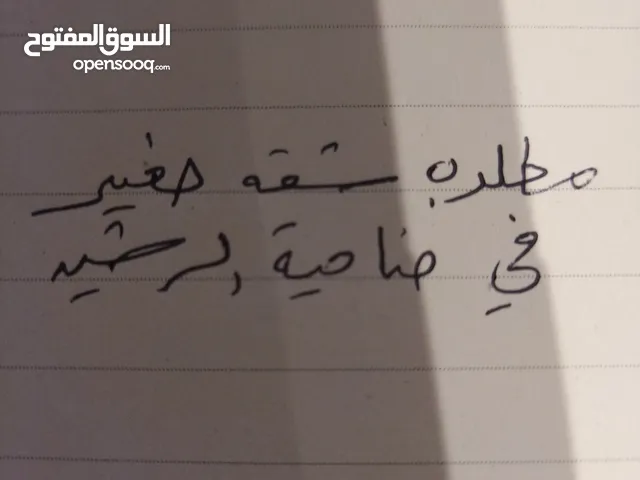 السوق المفتوح
opensooq.com
مطلوب شقه صغير
في ضاحية الرشيد